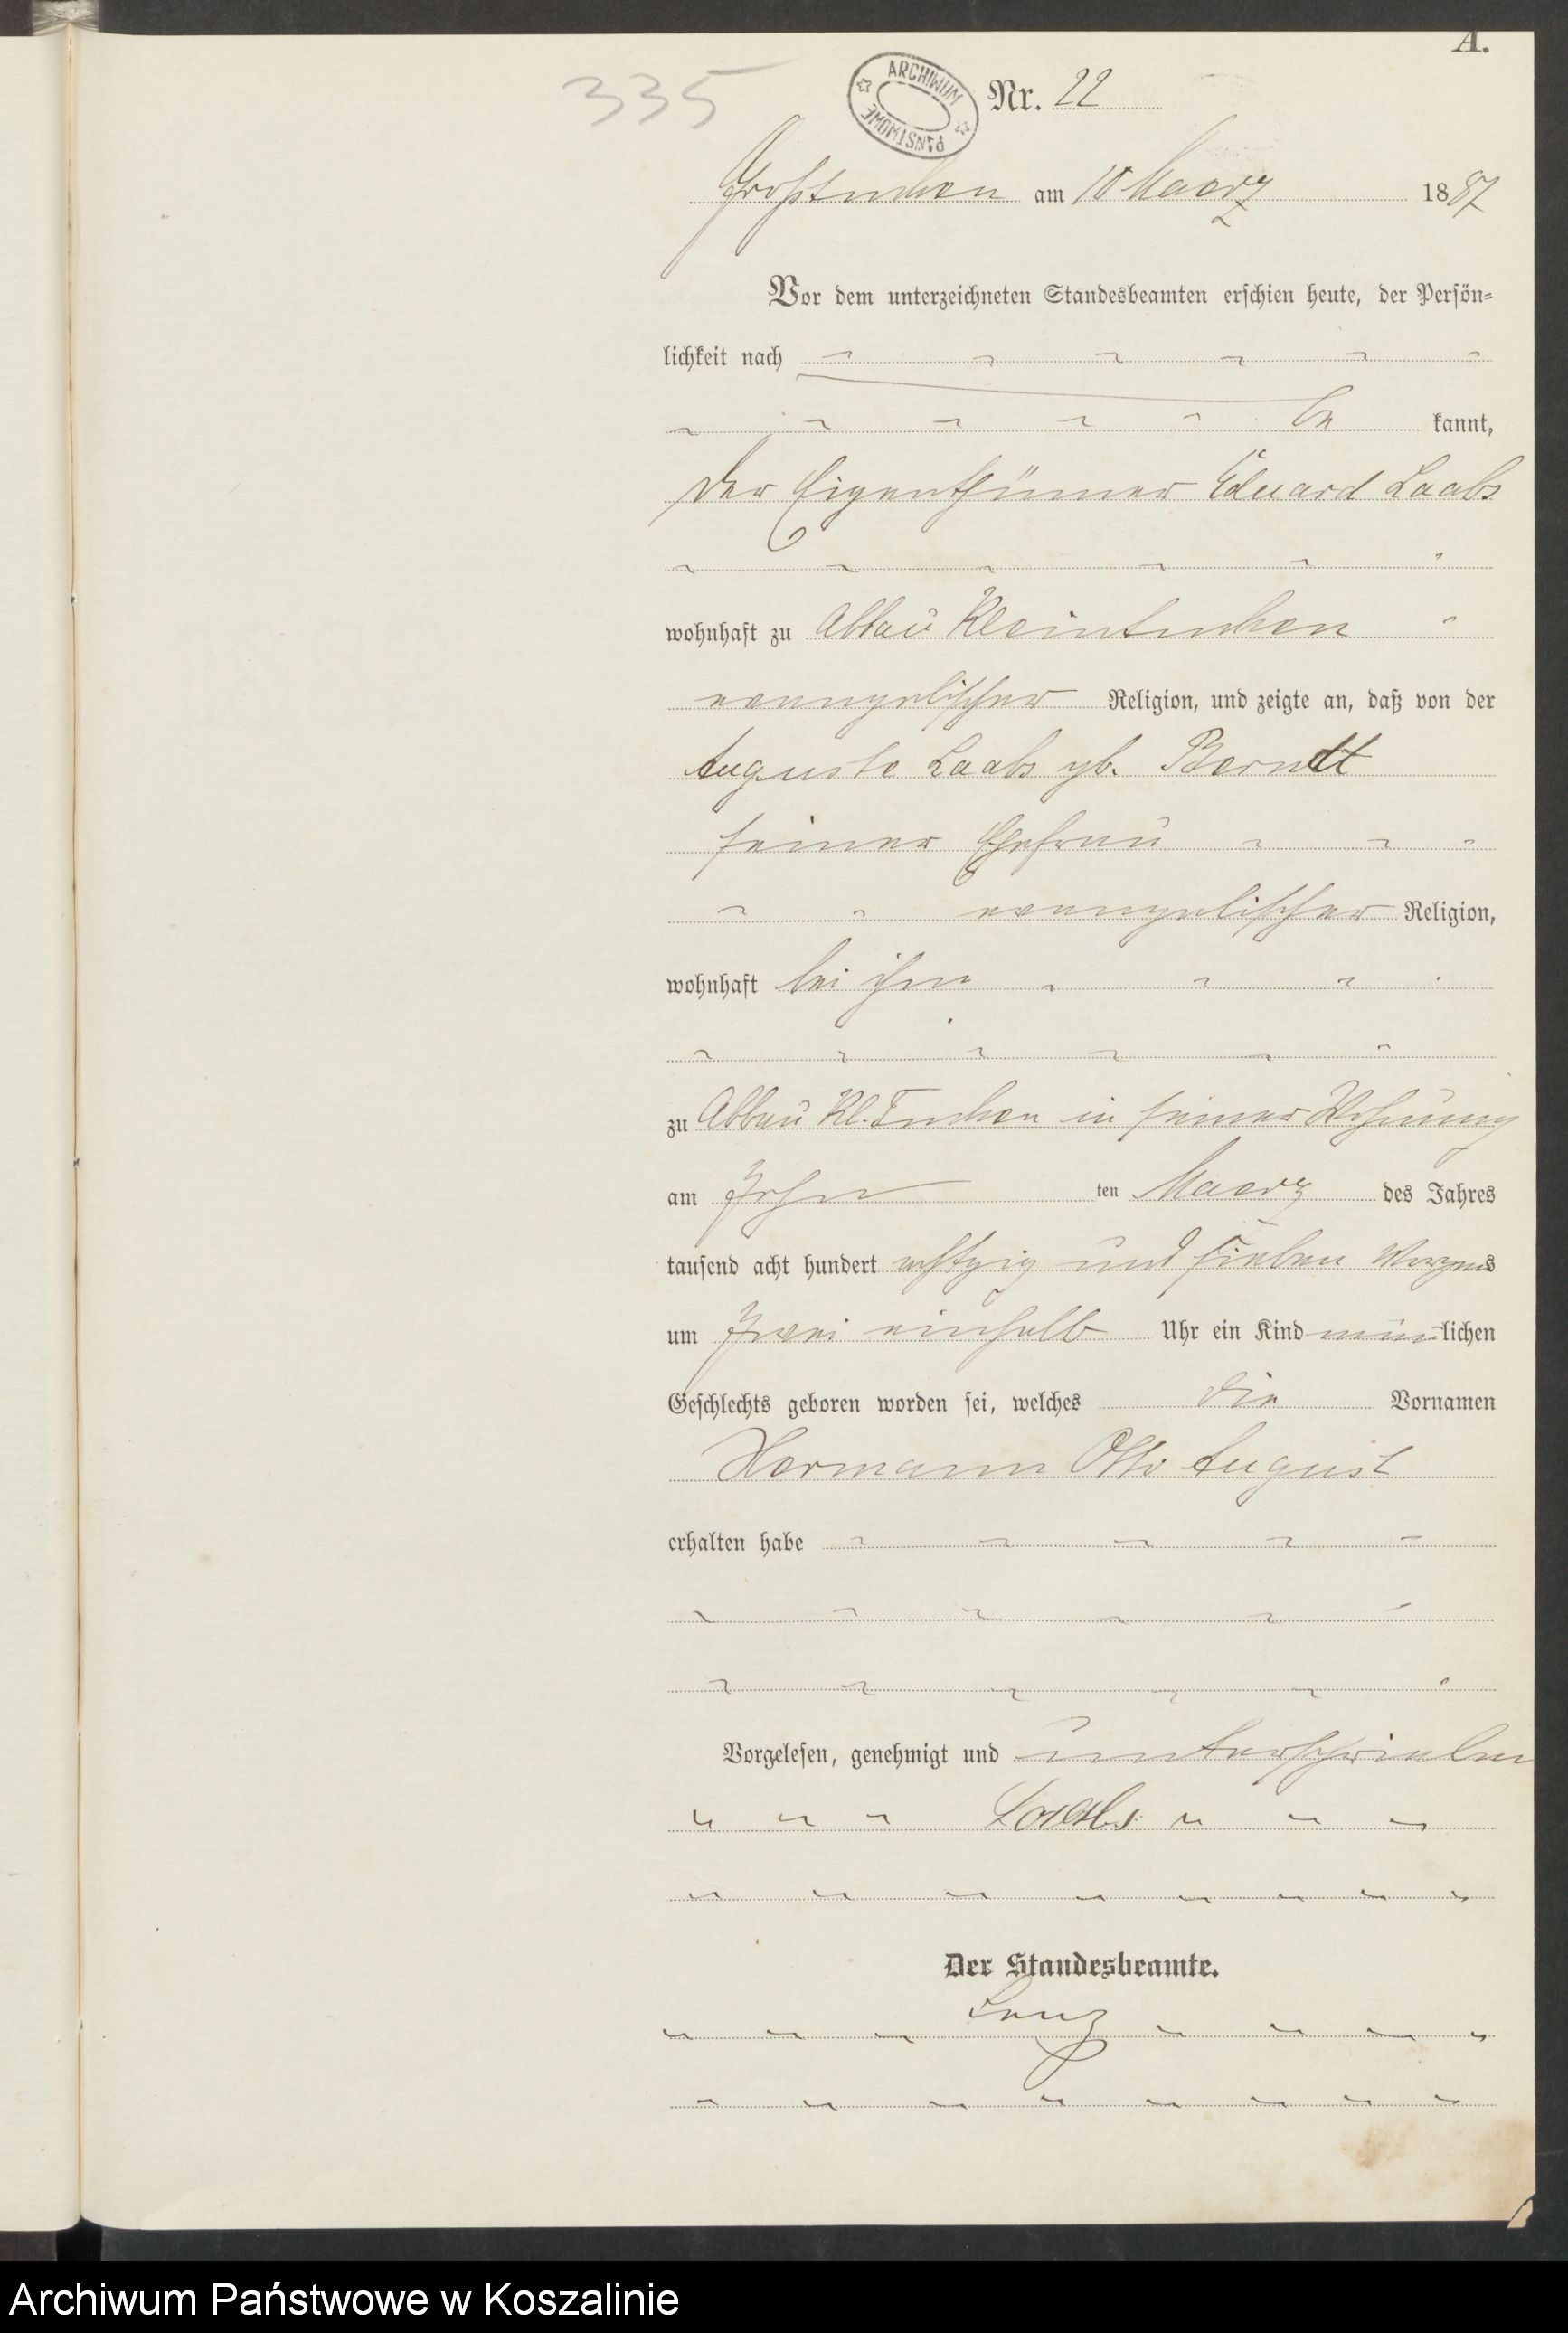 A.
335
ARCHIWUM PAŃSTWOWE
Nr. 22
Großtuchen am 10 Maerz 1887
Vor dem unterzeichneten Standesbeamten erschien heute, der Persön-
lichkeit nach
be kannt,
der Eigenthümer Eduard Laabs
wohnhaft zu Abbau Kleintuchen
evangelischer Religion, und zeigte an, daß von der
Auguste Laabs gb. Berndt
seiner Ehefrau
evangelischer Religion,
wohnhaft bei ihm
zu Abbau Kl. Tuchen in seiner Wohnung
am Zehn ten Maerz des Jahres
tausend acht hundert achtzig und sieben Morgens
um zwei einhalb Uhr ein Kind männlichen
Geschlechts geboren worden sei, welches die Vornamen
Hermann Otto August
erhalten habe
Vorgelesen, genehmigt und unterschrieben
Laabs
Der Standesbeamte.
Lenz
Archiwum Państwowe w Koszalinie